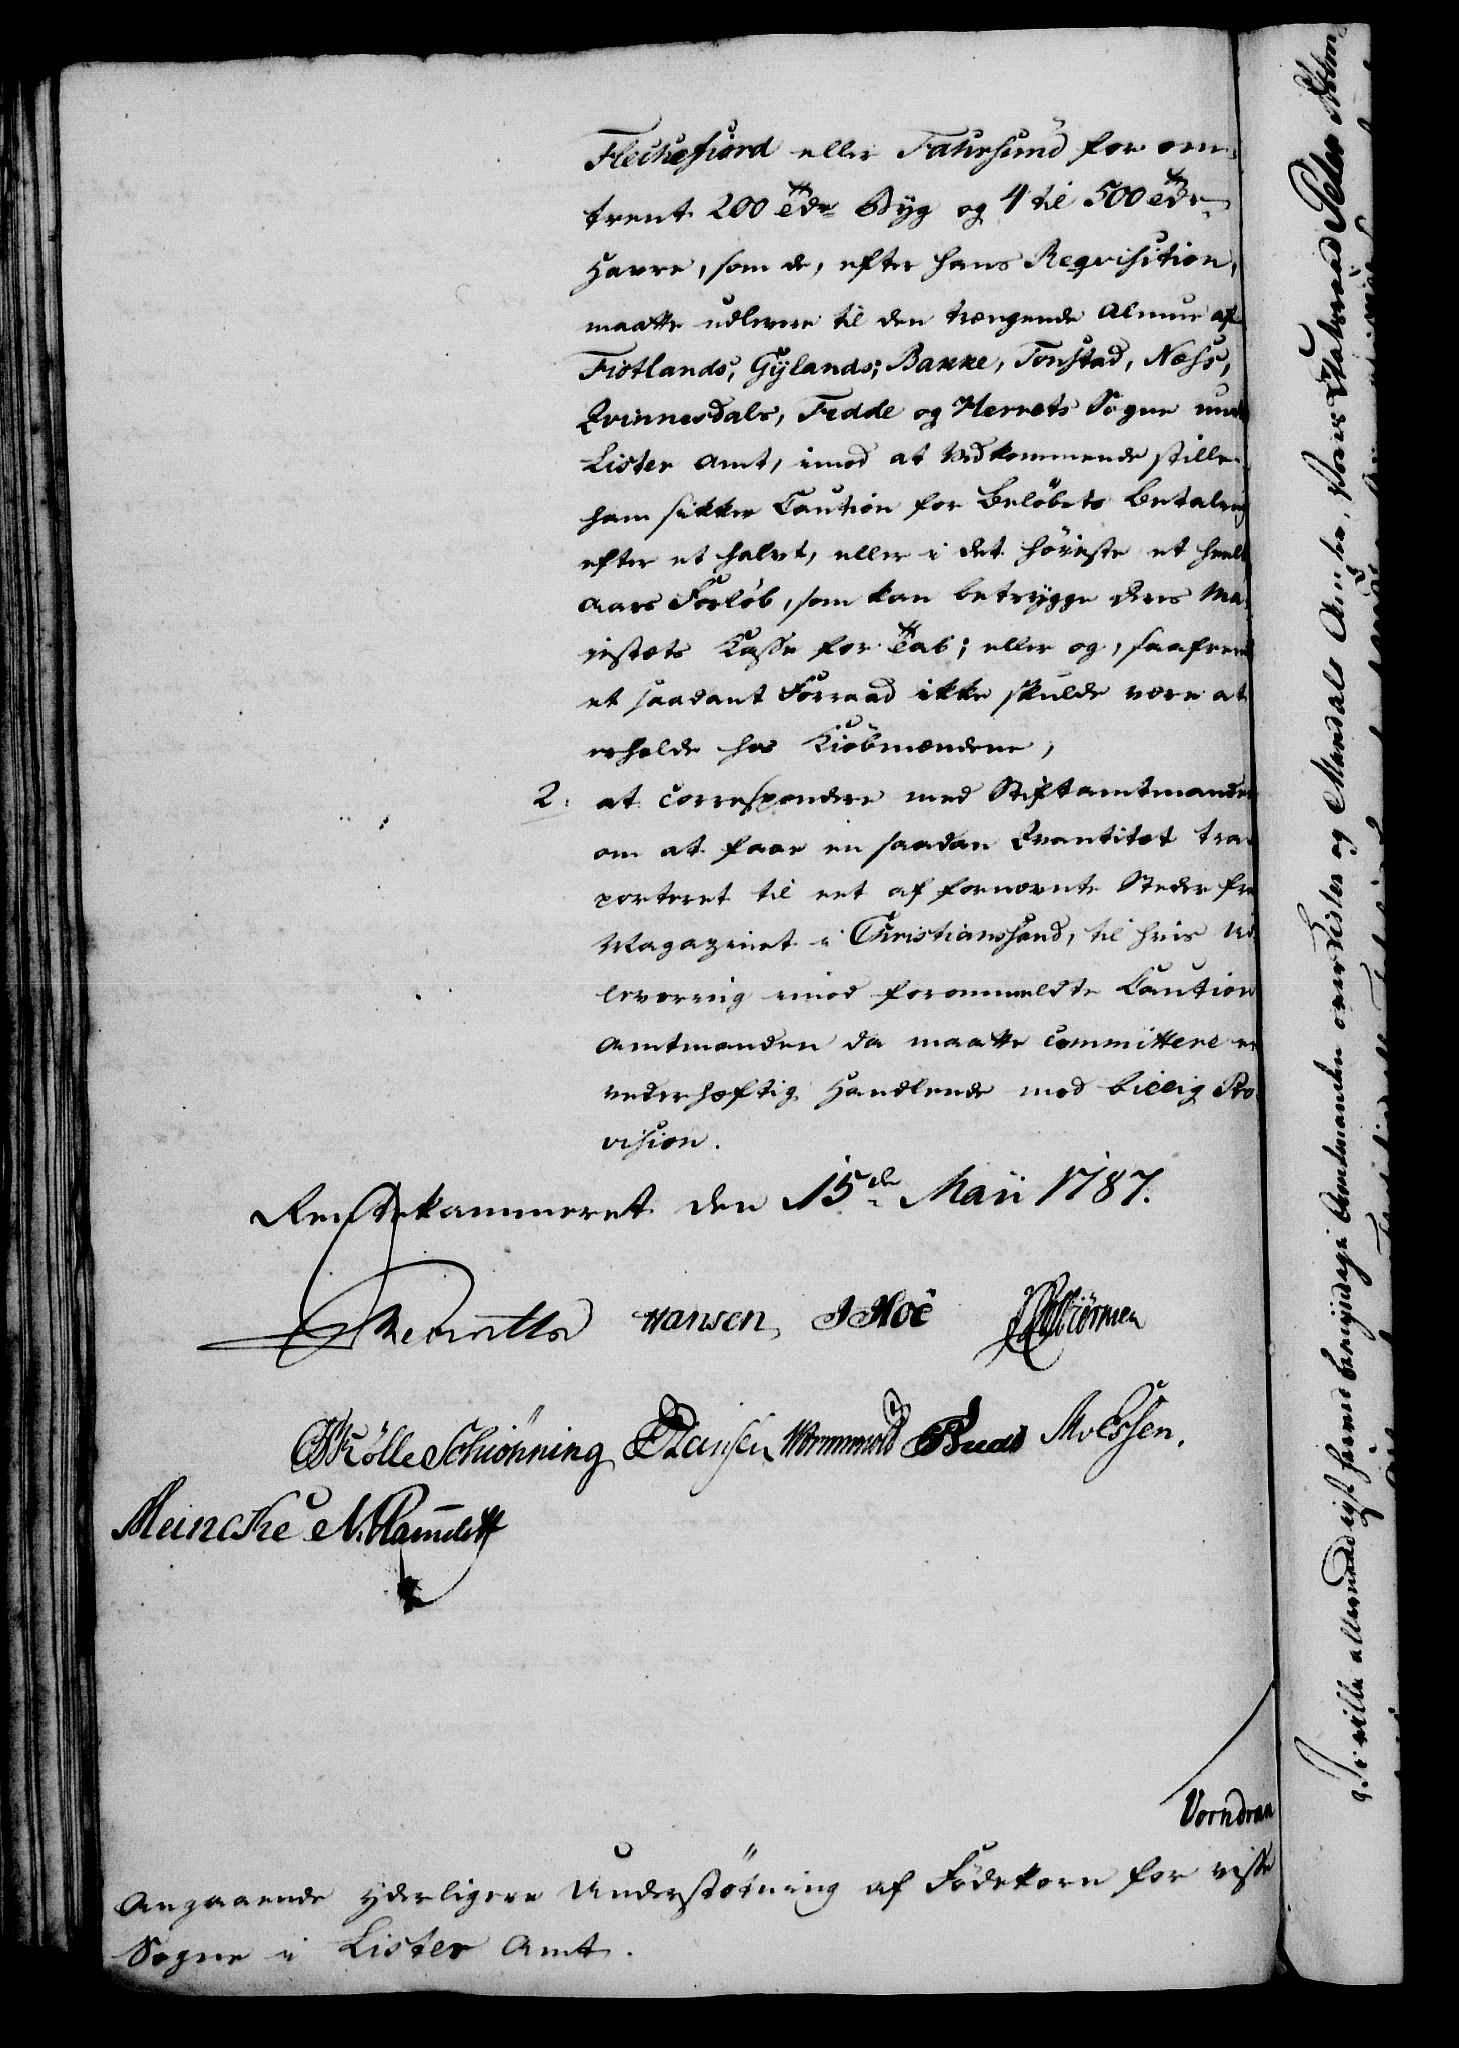 Fleckefiord eller Fahrsund for om-
trent 200 Tdr Byg og 4 til 500 Tdr
Havre, som de, efter hans Reqvisition,
maatte udlevere til den trængende Almue af
Fiotlands, Gÿlands, Bakke, Tonstad, Næss,
Qvinnesdals, Fedde og Herrets Sogne unde
Lister Amt, imod at Vedkommende stille
ham sikker Caution for Beløbets Betaling
efter et halvt, eller i det høieste et heelt
Aars Forløb, som kan betrygge Deres Ma-
jestæts Kasse for Tab; eller og, saafremt
et saadant Forraad ikke skulde være at
erholde hos Kiøbmændene,
2. at correspondere med Stiftamtmanden
om at faae en saadan Qvantitet trans
porteret til eet af fornævnte Steder fra
Magazinet i Christianssand, til hvis Ud
levering imod forommeldte Caution
Amtmanden da maatte committere en
vederhæftig Handlende mod billig Pro
vision.
Rentekammeret den 15de Maii 1787.
Hansen, J Hoë
Mölle Schiönning Hansen Wormskiold MvEssen.
Meincke N. Ramdett
Vorndran
Angaaende yderligere Understøtning af Fødekorn for visse
Sogne i Lister Amt.
Vi ville allernaadigst have bemyndiget Amtmanden over Lister og Mandals Amter, Vores Etatsraad Peter Holm